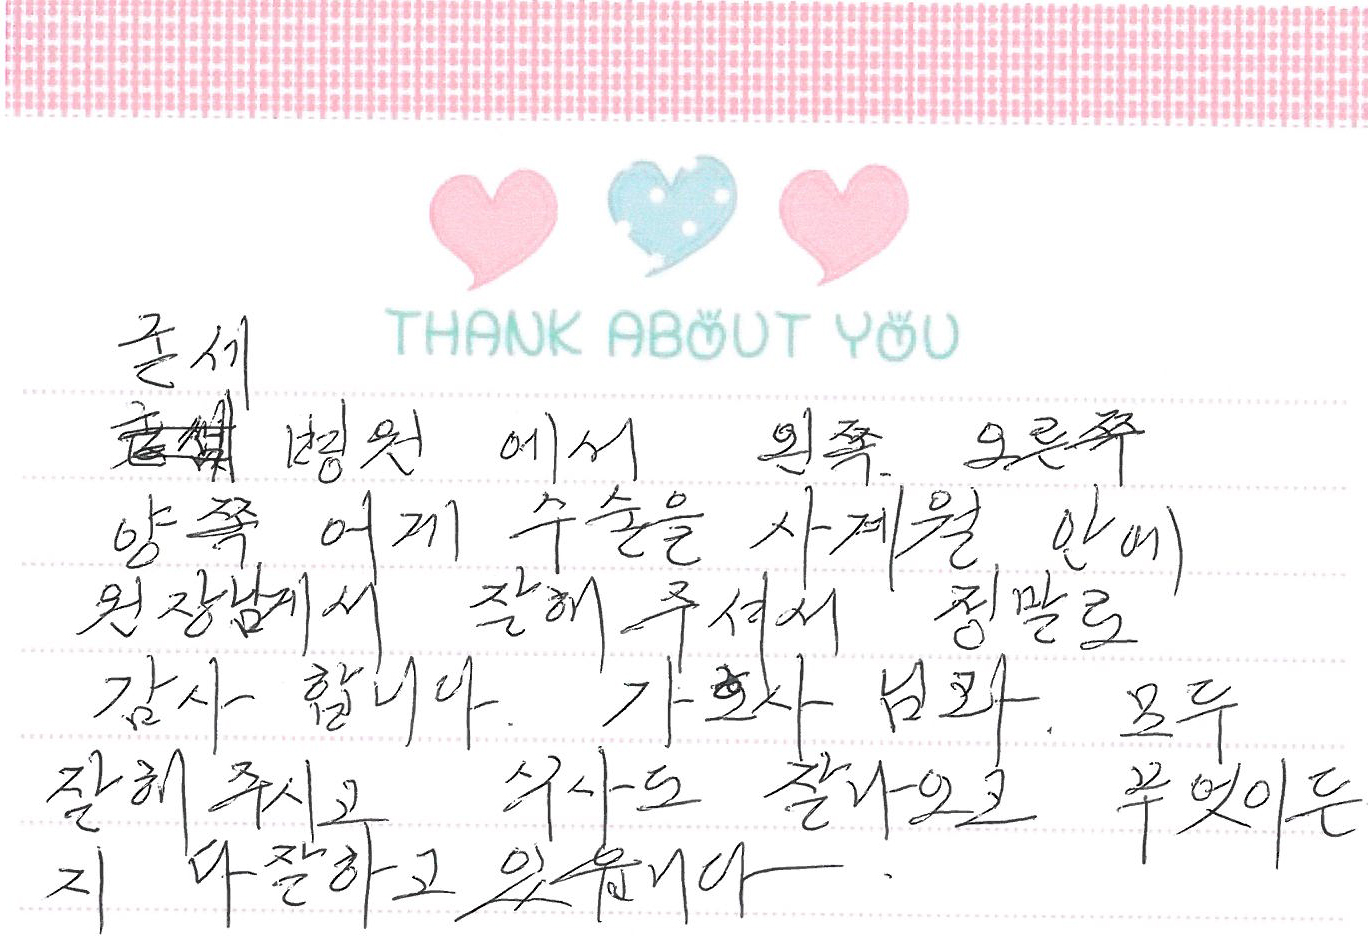 THANK ABOUT YOU
굳세
병원 에서 왼쪽. 오른쭉
양쪽 어제 수술을 사계월 안에
원장님게서 잘해 주셔서 정말로
감사 합니다. 가호사 님과. 모두
잘해 주시고 식사도 잘나오고 무엇이든
지 다잘하고 있읍니다.